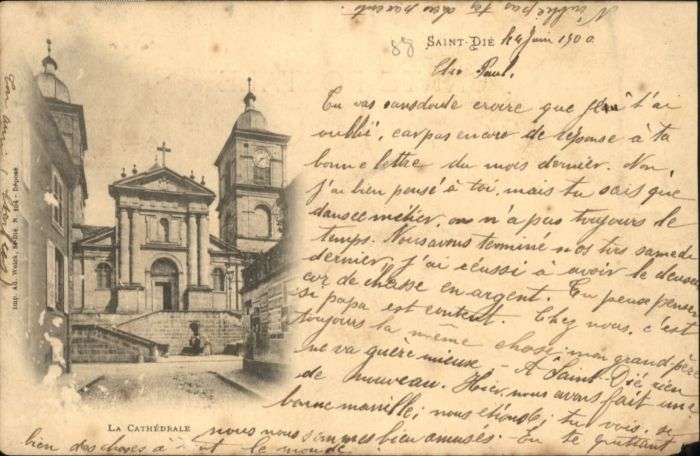 N'oublie pas
SAINT-DIÉ le 4 Juin 1900
88
Cher Paul,
Tu vas sans doute croire que je t'ai
oublié, car pas encore de réponse à ta
bonne lettre du mois dernier. Non,
j'ai bien pensé à toi, mais tu sais que
dans ce métier, on n'a pas toujours de
temps. Nous avons terminé nos tirs samedi
dernier, j'ai réussi à avoir le deuxième
cor de chasse en argent. Tu peux penser
si papa est content. Chez nous, c'est
toujours la même chose; mon grand père
ne va guère mieux - A Saint Dié, rien
de nouveau. Hier, nous avons fait une
bonne manille; nous étions; tu vois, si
nous nous sommes bien amusés. En te quittant
bien des choses à tout le monde.
LA CATHÉDRALE
Imp. Ad. Weick, St-Dié. Déposé
Ton ami